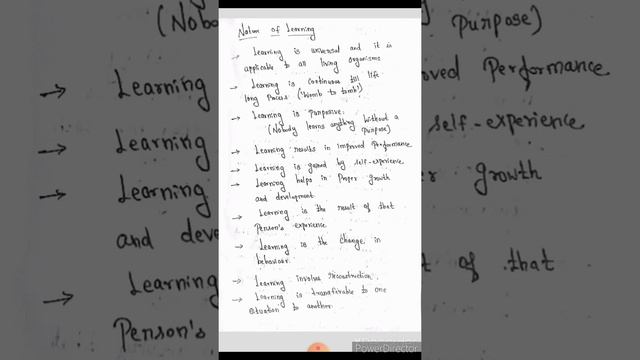 Nature of Learning
→ Learning is universal and it is
applicable to all living organisms
→ Learning is continuous till life
long Process ('womb to tomb')
→ Learning is purposive.
(Nobody learns anything without a
purpose)
→ Learning results in improved performance
→ Learning is gained by self-experience
→ Learning helps in proper growth
and development
→ Learning is the result of that
Person's experience
→ Learning is the change in
behaviour.
→ Learning involve reconstruction.
→ Learning is transferable to one
situation to another.
(Nobo
→ Learning
→ Learning
→ Learning
and deve
→ Learning
Person's
purpose)
oved Performance
self-experience
r growth
t of that
PowerDirector